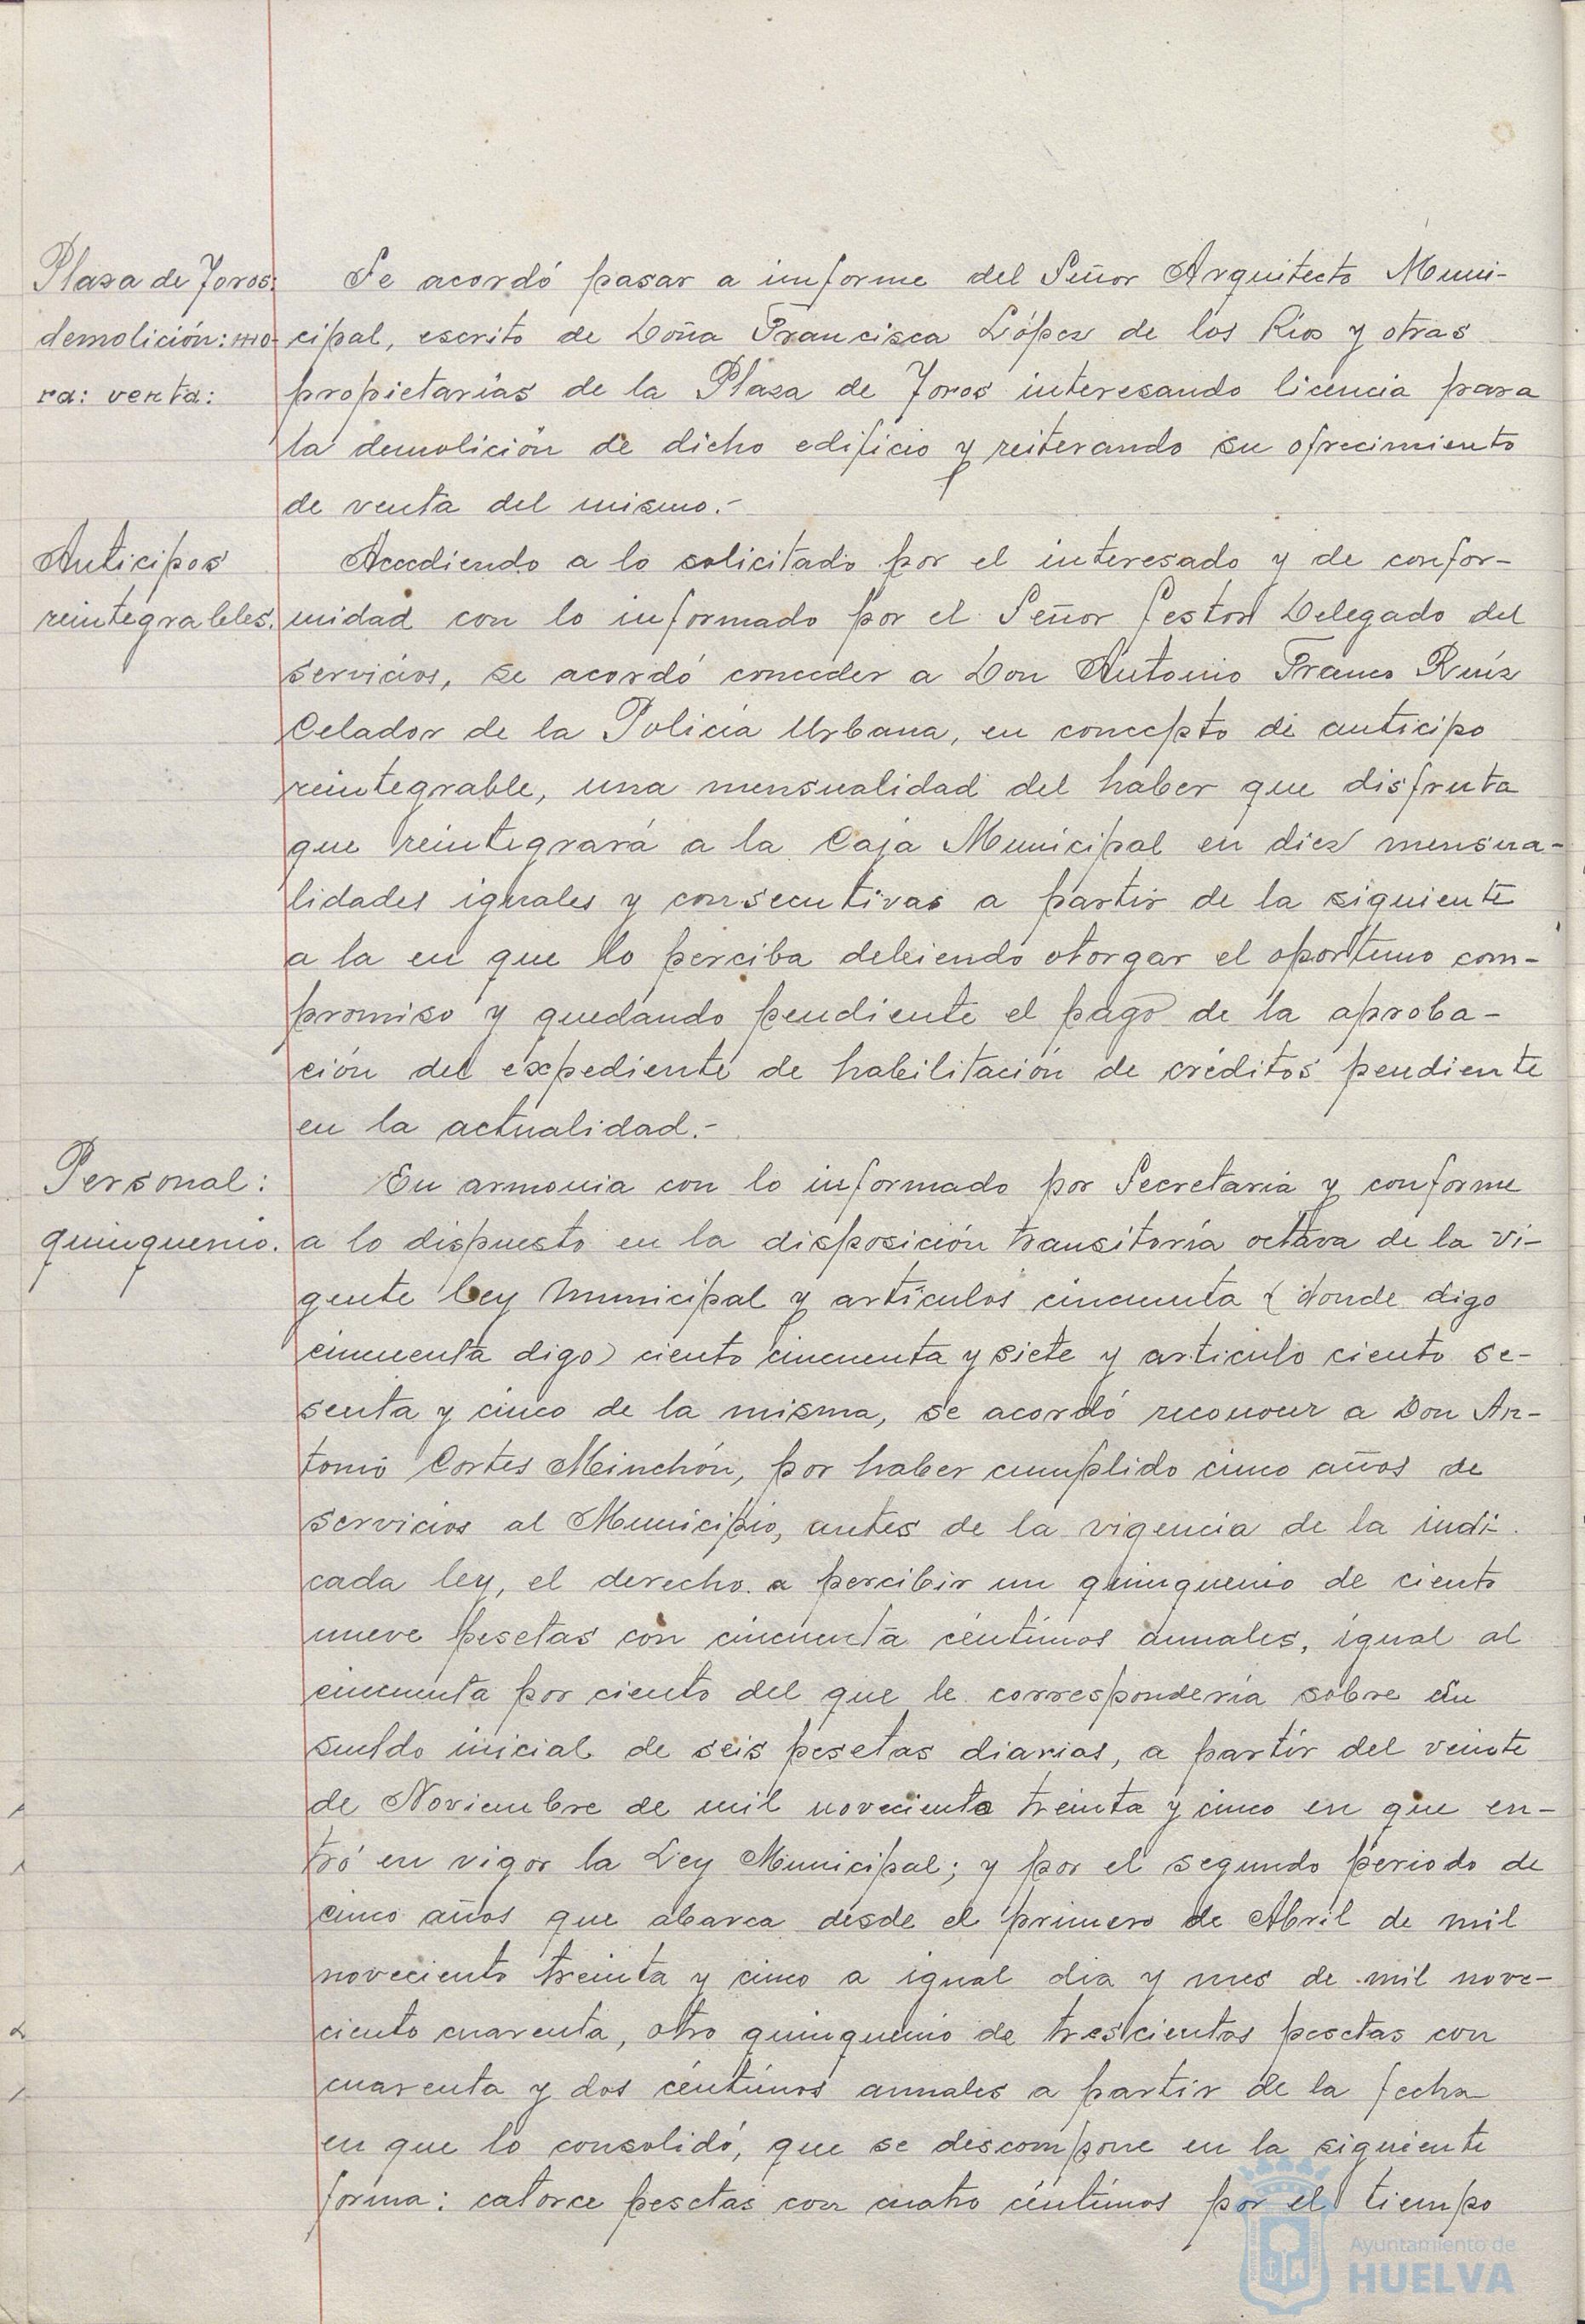 Plaza de Toros:
demolición: mo-
ra: venta:
Se acordó pasar a informe del Señor Arquitecto Muni-
cipal, escrito de Doña Francisca López de los Ríos y otras
propietarias de la Plaza de Toros interesando licencia para
la demolición de dicho edificio y reiterando su ofrecimiento
de venta del mismo.-
Anticipos
reintegrables.
Accediendo a lo solicitado por el interesado y de confor-
midad con lo informado por el Señor Gestor Delegado del
servicios, se acordó conceder a Don Antonio Franco Ruiz
Celador de la Policía Urbana, en concepto de anticipo
reintegrable, una mensualidad del haber que disfruta
que reintegrará a la Caja Municipal en diez mensua-
lidades iguales y consecutivas a partir de la siguiente
a la en que lo perciba debiendo otorgar el oportuno com-
promiso y quedando pendiente el pago de la aproba-
ción del expediente de habilitación de créditos pendiente
en la actualidad.-
Personal:
quinquenio.
En armonia con lo informado por Secretaría y conforme
a lo dispuesto en la disposición transitoria octava de la vi-
gente ley Municipal y artículos cincuenta (donde digo
cincuenta digo) ciento cincuenta y siete y articulo ciento se-
senta y cinco de la misma, se acordó reconocer a Don An-
tonio Cortes Minchón, por haber cumplido cinco años de
servicios al Municipio, antes de la vigencia de la indi-
cada ley, el derecho a percibir un quinquenio de ciento
nueve pesetas con cincuenta céntimos anuales, igual al
cincuenta por ciento del que le correspondería sobre un
sueldo inicial de seis pesetas diarias, a partir del veinte
de Noviembre de mil noveciento treinta y cinco en que en-
tró en vigor la Ley Municipal; y por el segundo periodo de
cinco años que abarca desde el primero de Abril de mil
noveciento treinta y cinco a igual dia y mes de mil nove-
ciento cuarenta, otro quinquenio de trescientas pesetas con
cuarenta y dos céntimos anuales a partir de la fecha
en que lo consolidó, que se descompone en la siguiente
forma: catorce pesetas con cuatro céntimos por el tiempo
Ayuntamiento de
HUELVA